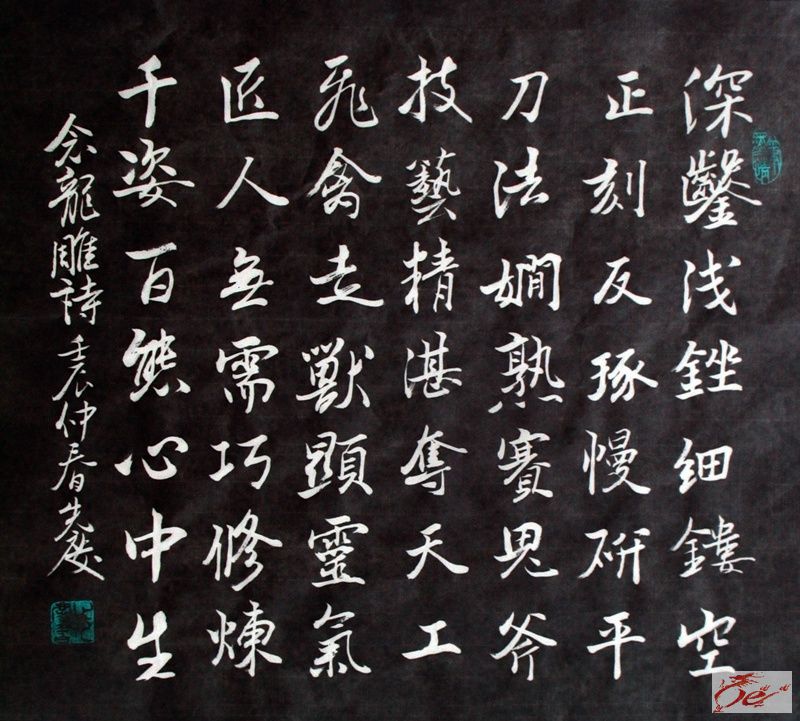 深鑿浅銼细鏤空
正刻反琢慢研平
刀法嫻熟賽鬼斧
技藝精湛奪天工
飛禽走獸顕靈氣
匠人無需巧修煉
千姿百態心中生
念龍雕詩 壬辰仲春